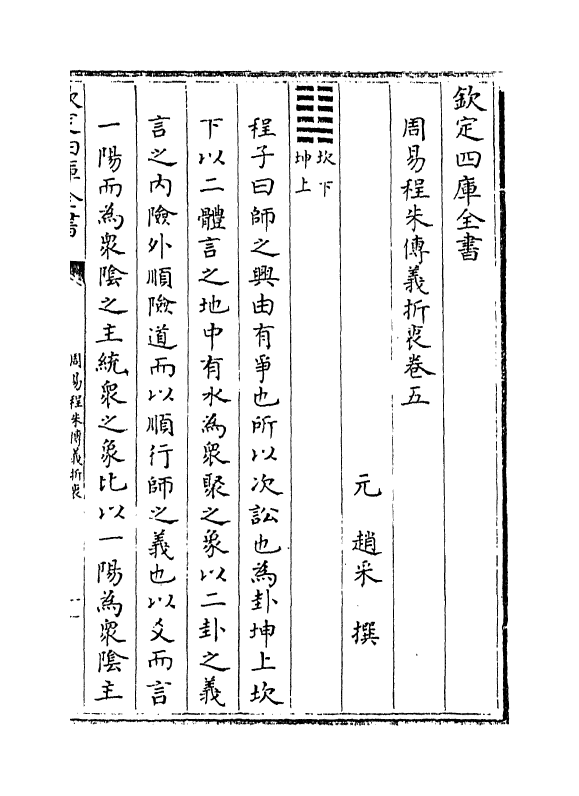 欽定四庫全書
周易程朱傳義折衷卷五
元 趙采 撰
坎下
坤上
程子曰師之興由有爭也所以次訟也為卦坤上坎
下以二體言之地中有水為衆聚之象以二卦之義
言之內險外順險道而以順行師之義也以爻而言
一陽而為衆陰之主統衆之象比以一陽為衆陰主
欽定四庫全書
周易程朱傳義折衷